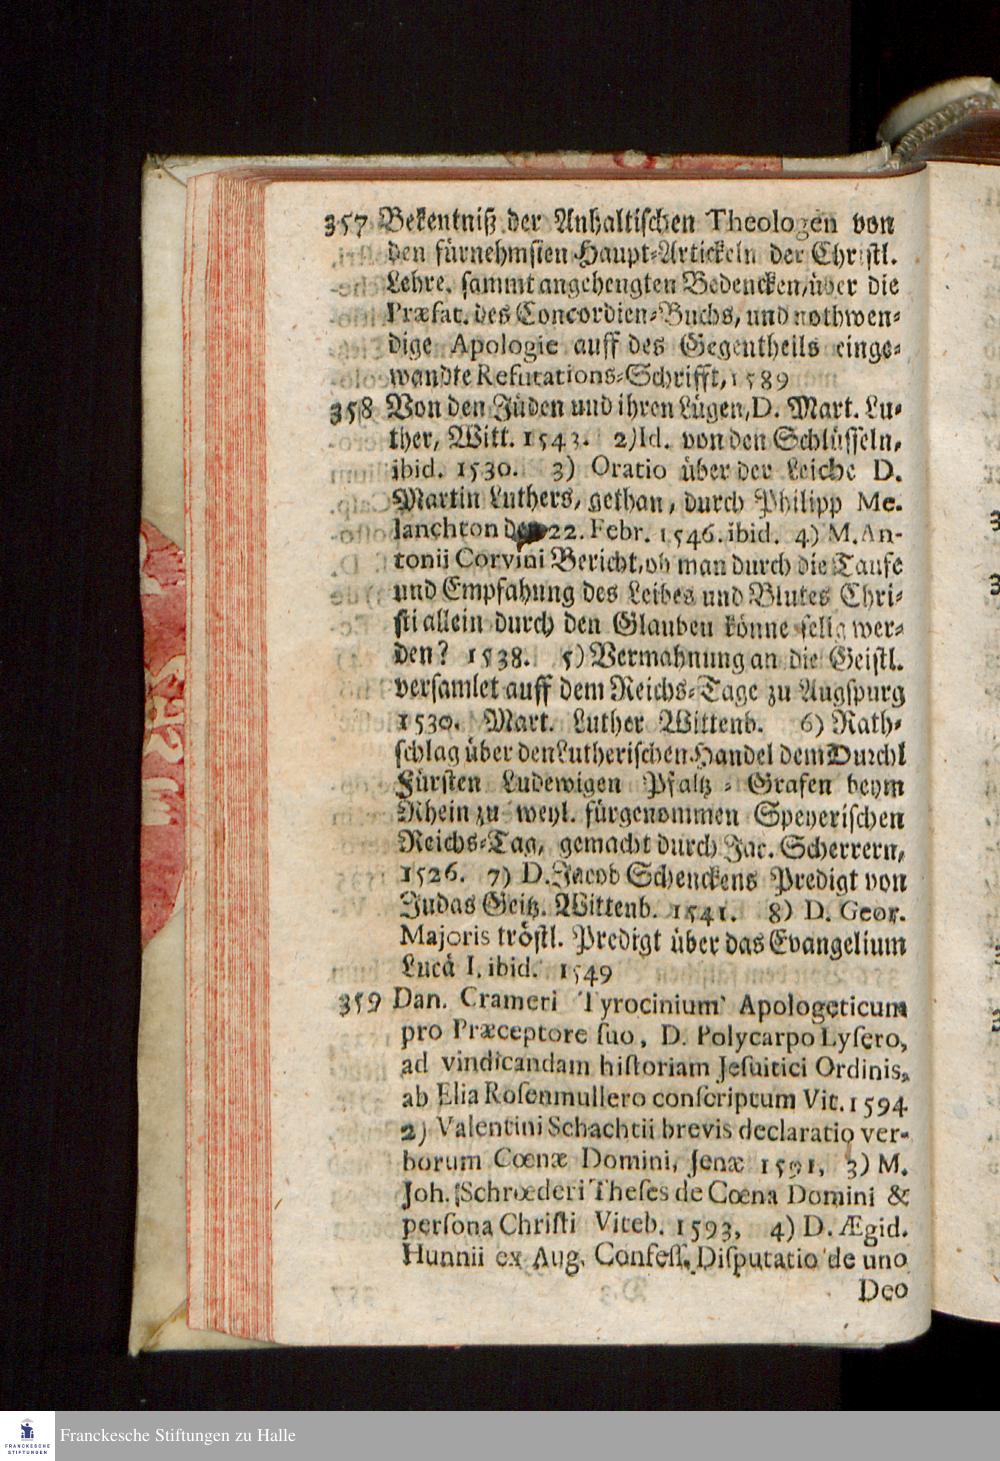 357 Bekentniß der Anhaltischen Theologen von
den fürnehmsten Haupt-Artickeln der Christl.
Lehre, sammt angehengten Bedencken, über die
Præfat. des Concordien-Buchs, und nothwen-
dige Apologie auff des Gegentheils einge-
wandte Refutations-Schrifft, 1589
358 Von den Jüden und ihren Lügen, D. Mart. Lu-
ther, Witt. 1543. 2) Id. von den Schlüsseln,
ibid. 1530. 3) Oratio über der Leiche D.
Martin Luthers, gethan, durch Philipp Me-
lanchton den 22. Febr. 1546. ibid. 4) M. An-
tonii Corvini Bericht, ob man durch die Taufe
und Empfahung des Leibes und Blutes Chri-
sti allein durch den Glauben könne selig wer-
den? 1538. 5) Vermahnung an die Geistl.
versamlet auff dem Reichs-Tage zu Augspurg
1530. Mart. Luther Wittenb. 6) Rath-
schlag über den Lutherischen Handel dem Durchl
Fürsten Ludewigen Pfaltz-Grafen beym
Rhein zu weyl. fürgenommen Speyerischen
Reichs-Tag, gemacht durch Jac. Scherrern,
1526. 7) D. Jacob Schenckens Predigt von
Judas Geitz. Wittenb. 1541. 8) D. Geor.
Majoris tröstl. Predigt über das Evangelium
Lucä I, ibid. 1549
359 Dan. Crameri Tyrocinium Apologeticum
pro Præceptore suo, D. Polycarpo Lysero,
ad vindicandam historiam Jesuitici Ordinis,
ab Elia Rosenmullero conscriptum Vit. 1594
2) Valentini Schachtii brevis declaratio ver-
borum Cœnæ Domini, Jenæ 1591, 3) M.
Joh. Schrœderi Theses de Cœna Domini &
persona Christi Viteb. 1593, 4) D. Ægid.
Hunnii ex Aug. Confess. Disputatio de uno
Deo
FRANCKESCHE
STIFTUNGEN
Franckesche Stiftungen zu Halle